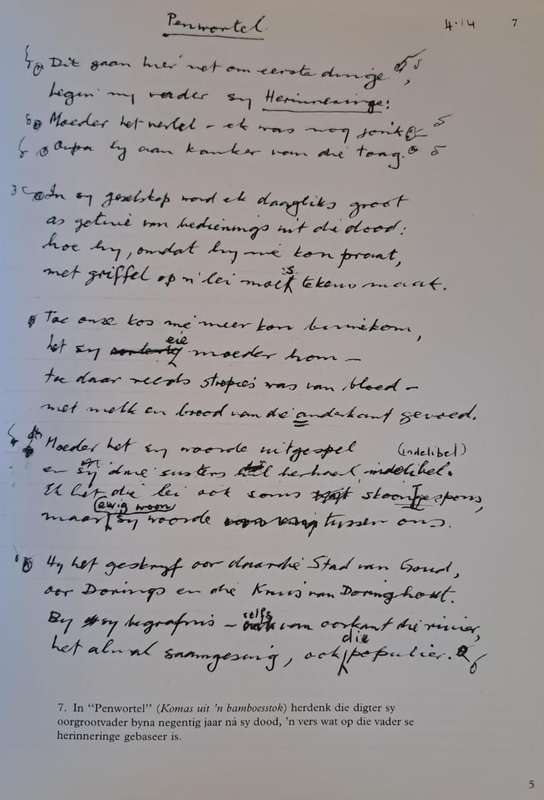 Penwortel
4.14
7
Dit gaan hier net om eerste dinge,
begin my vader sy Herinneringe:
Moeder het vertel – ek was nog jonk
Oupa ly aan kanker van die tong.
In sy geselskap word ek daagliks groot
as getuie van bedienings uit die dood:
hoe hy, omdat hy nie kon praat,
met griffel op 'n lei moes tekens maak.
Toe onse kos nie meer kon binnekom,
het sy eie moeder hom –
toe daar reeds stropies was van bloed –
met melk en brood van die anderkant gevoed.
Moeder het sy woorde uitgespel
(indelibel)
en drie susters herhaal, indelibel.
Ek het die lei ook soms skoongespons,
ewig woon
maar sy woorde tussen ons.
Hy het geskryf oor daardie Stad van Goud,
oor Dorings en die Kruis van Doringhout.
By sy begrafnis – selfs van oorkant die rivier,
het almal saamgesing, ook die populier.
7. In "Penwortel" (Komas uit 'n bamboesstok) herdenk die digter sy
oorgrootvader byna negentig jaar ná sy dood, 'n vers wat op die vader se
herinneringe gebaseer is.
5